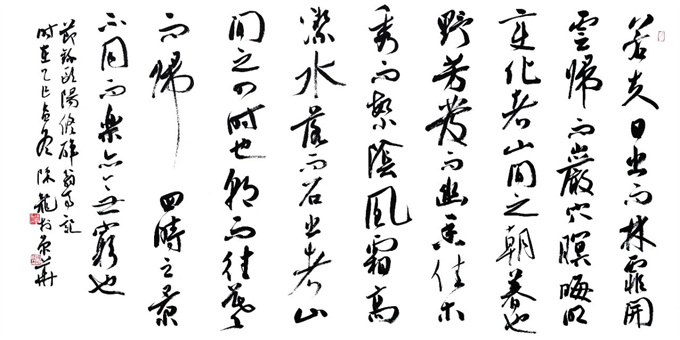 若夫日出而林霏開
雲歸而巖穴暝晦明
變化者山間之朝暮也
野芳發而幽香佳木
秀而繁陰風霜高
潔水落而石出者山
間之四時也朝而往暮
而歸 四時之景
不同而樂亦無窮也
節錄歐陽修醉翁亭記
时在乙巳孟冬陈龍於京華